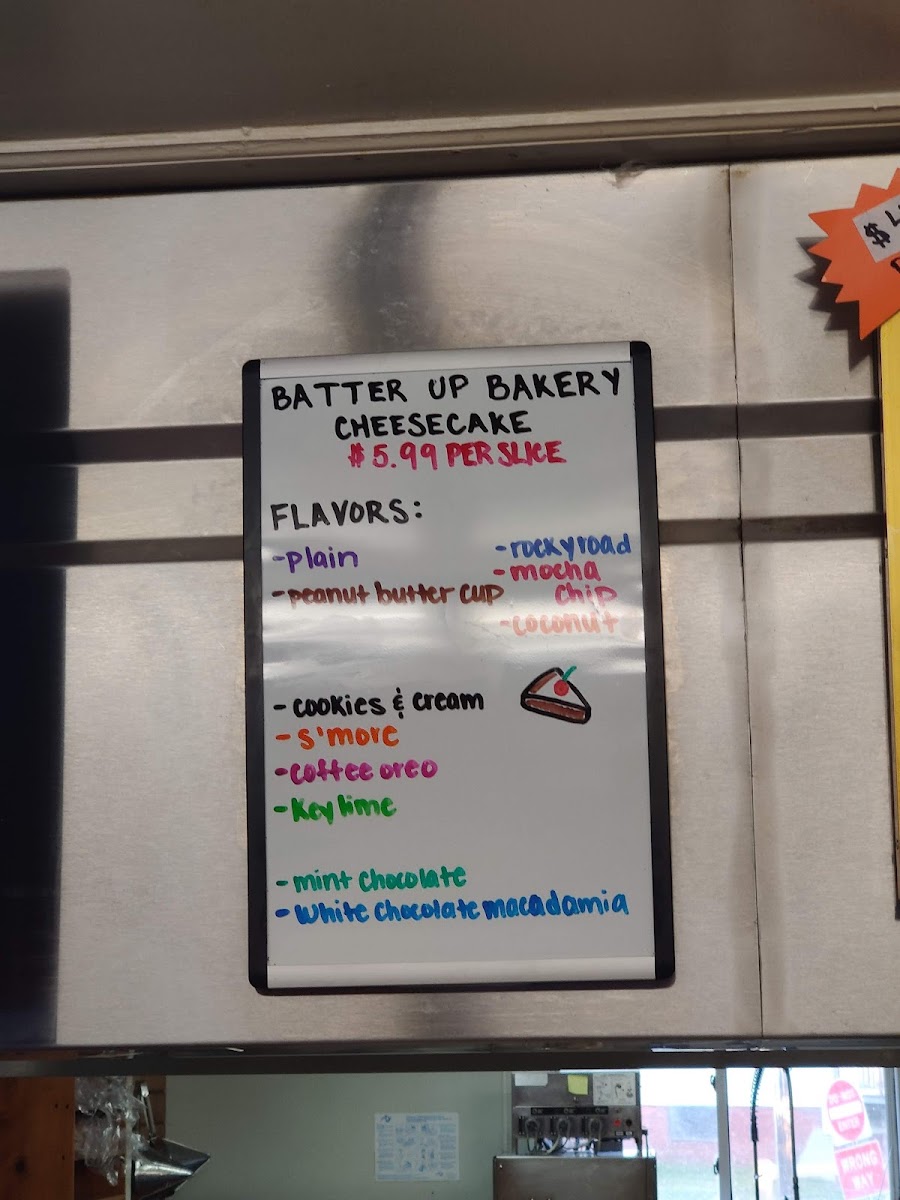 BATTER UP BAKERY
CHEESECAKE
$5.99 PER SLICE
FLAVORS:
-plain
-peanut butter cup
-rocky road
-mocha
chip
-coconut
-cookies & cream
-s'more
-coffee oreo
-Key lime
-mint chocolate
-White chocolate macadamia
$
DO NOT
ENTER
WRONG
WAY